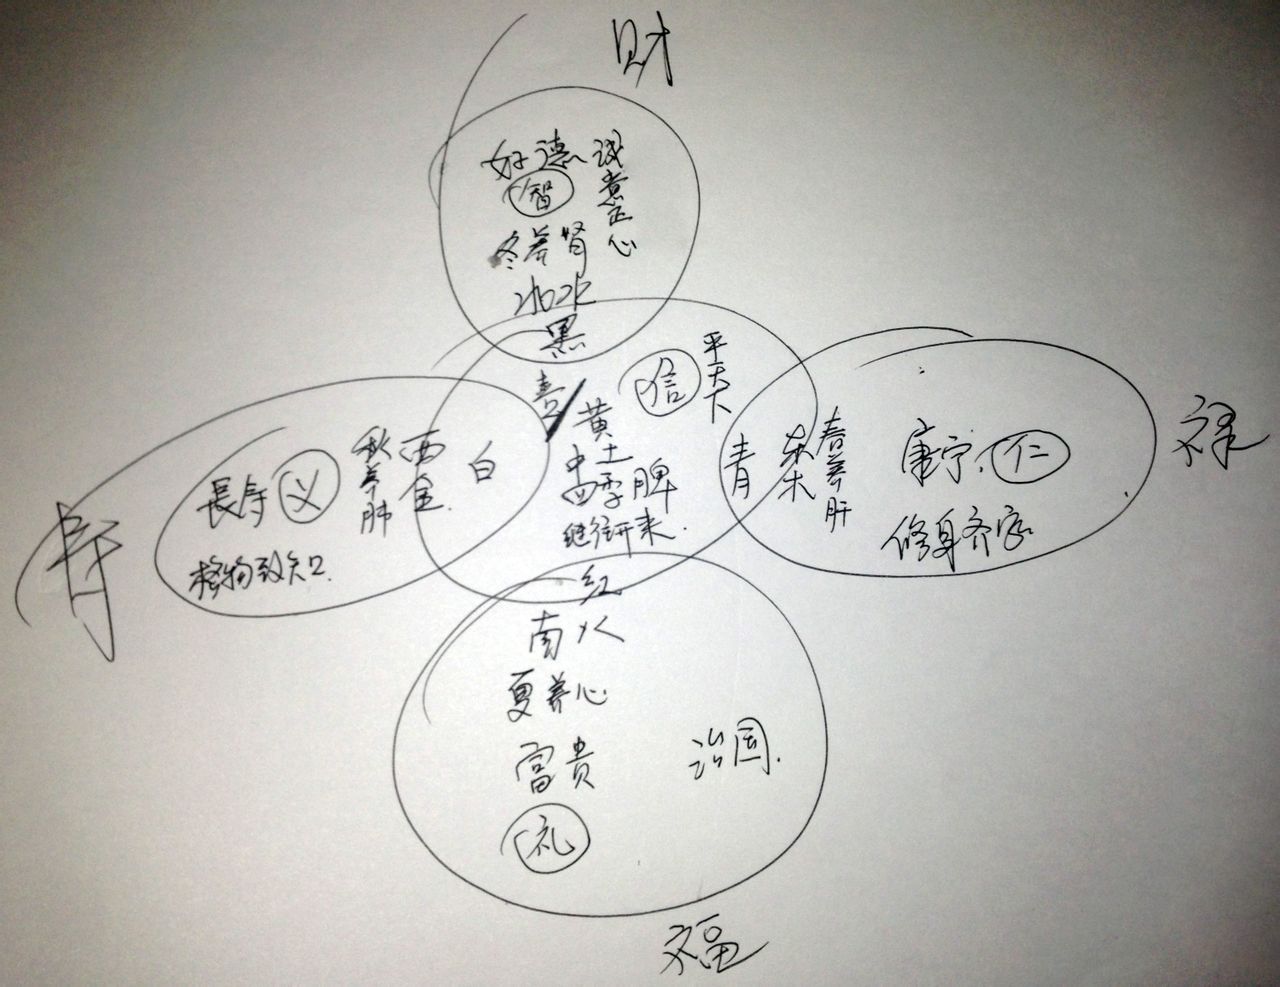 财
好德
诚意正心
智
冬养肾
北水
黑
信
平天下
喜
黄
中土
四季脾
继往开来
寿
長寿
义
秋养肺
西金
白
格物致知
青
东木
春养肝
康宁
仁
修身齐家
禄
红
南火
夏养心
富贵
治国
礼
福